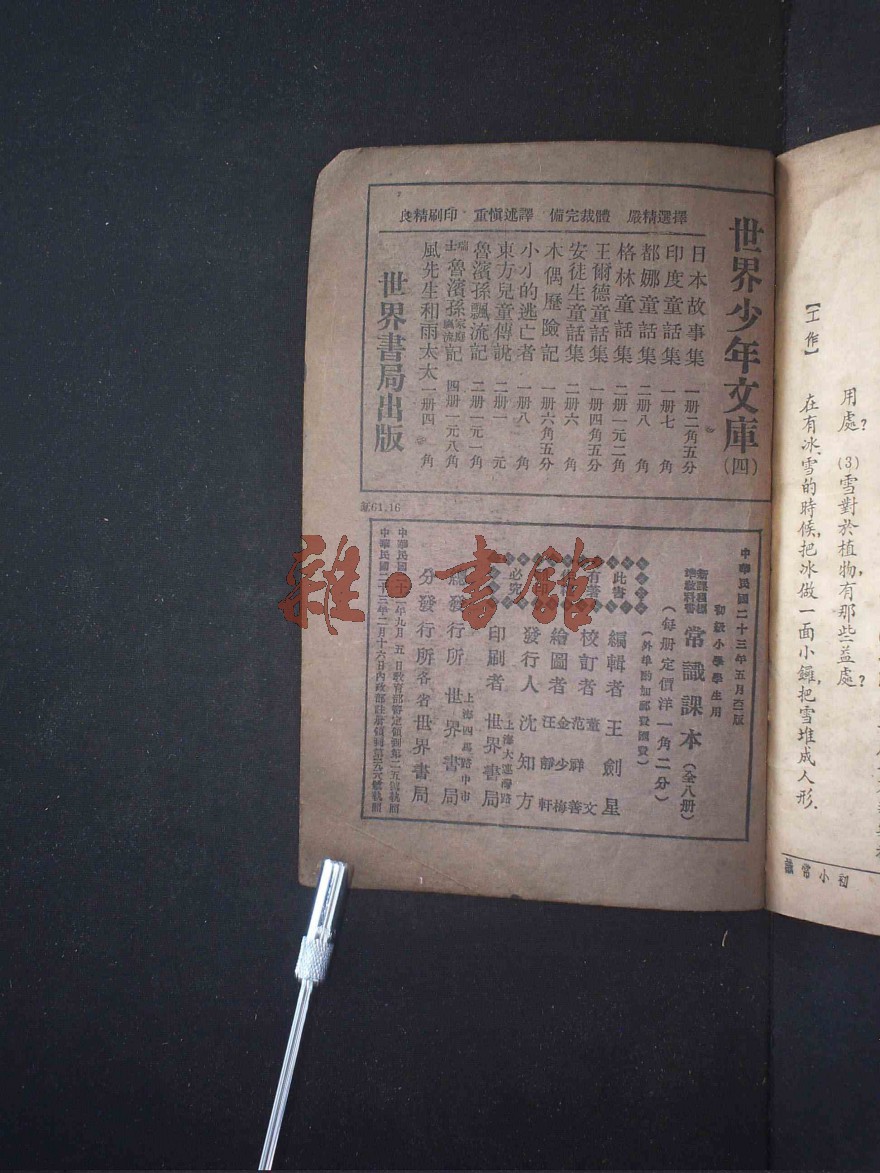 用處？ (3)雪對於植物，有那些益處？
【工作】 在有冰、雪的時候，把冰做一面小鑼，把雪堆成人形．
初小常識
世界少年文庫(四)
選擇精嚴 體裁完備 譯述慎重 印刷精良
日本故事集 一册二角五分
印度童話集 一册七角
都娜童話集 二册八角
格林童話集 二册一元二角
王爾德童話集 一册四角五分
安徒生童話集 二册六角
木偶歷險記 一册六角五分
小小的逃亡者 一册八角
東方兒童傳說 二册一元
魯濱孫飄流記 二册一元一角
瑞士魯濱孫家庭飄流記 四册一元八角
風先生和雨太太 一册四角
世界書局出版
61.16
中華民國二十三年五月 版
初級小學學生用
新課程標準教科書 常識課本(全八册)
(每册定價洋一角二分)
(外埠酌加郵費匯費)
此書有著 必究
編輯者 王劍星
校訂者 董文 范祥善
繪圖者 金少梅 汪靜軒
發行人 沈知方
印刷者 上海大連灣路 世界書局
總發行所 上海四馬路中市 世界書局
分發行所 各省世界書局
中華民國二十一年九月五日教育部審定領到第二五號執照
中華民國二十三年二月十六日內政部註册領到第 號執照
雜·書館